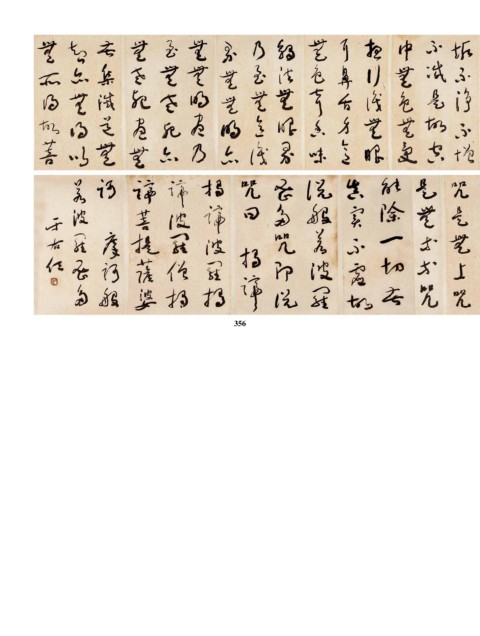 垢不淨不增
不減是故空
中無色無受
想行識無眼
耳鼻舌身意
無色聲香味
觸法無眼界
乃至無意識
界無無明亦
無無明盡乃
至無老死亦
無老死盡無
苦集滅道無
智亦無得以
無所得故菩
咒是無上咒
是無等等咒
能除一切苦
真實不虛故
說般若波羅
蜜多咒即說
咒曰 揭諦
揭諦波羅揭
諦波羅僧揭
諦菩提薩婆
訶 摩訶般
若波羅蜜多
于右任
356